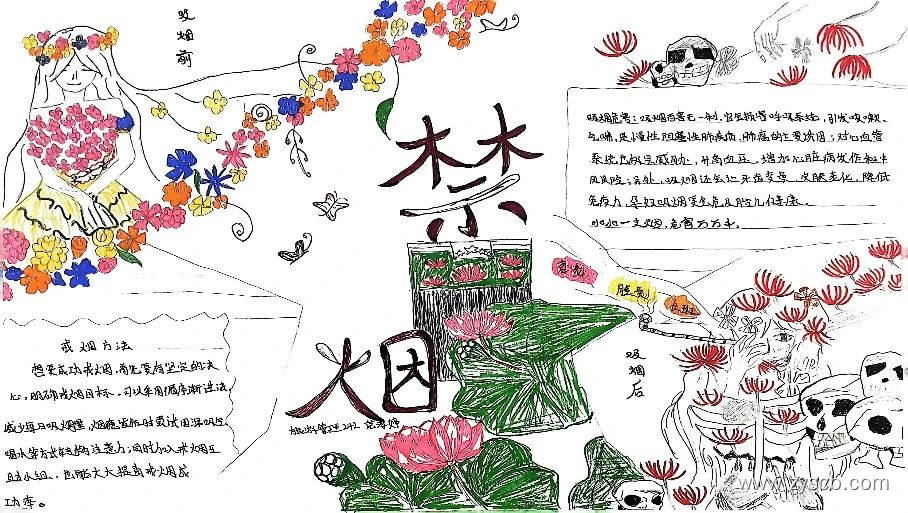 吸烟前
禁烟
吸烟危害：吸烟百害无一利，它会损害呼吸系统，引发咳嗽、
气喘，是慢性阻塞性肺疾病、肺癌的主要诱因；对心血管
系统也极具威胁力，升高血压，增加心脏病发作和中
风风险；另外，吸烟还会让牙齿变黄、皮肤老化，降低
免疫力，孕妇吸烟更危及胎儿健康。
小小一支烟，危害万万千。
吸烟后
戒烟方法
想要成功戒烟，首先要有坚定的决
心，明确戒烟目标，可以采用循序渐进法
减少每日吸烟量，烟瘾发作时尝试用深呼吸
喝水等方式转移注意力；同时加入戒烟互
助小组，也能大大提高戒烟成
功率。
www.zyscb.com